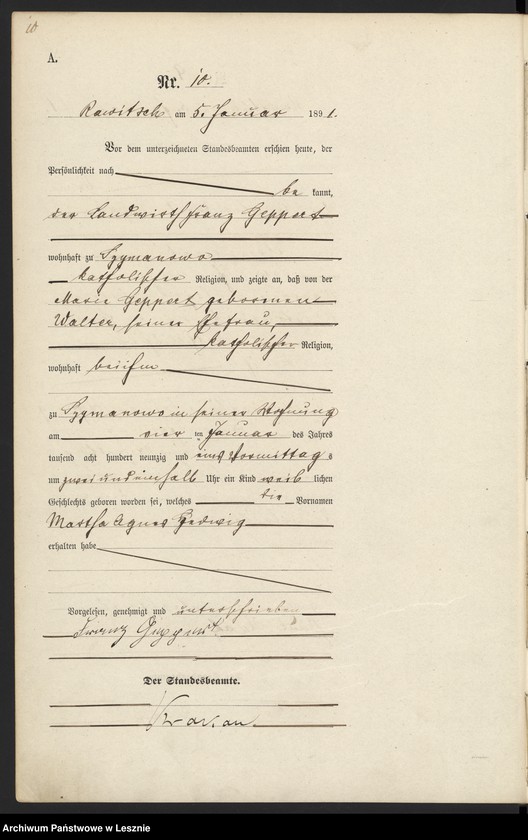 10
A.
Nr. 10.
Rawitsch am 5. Januar 1891.
Vor dem unterzeichneten Standesbeamten erschien heute, der
Persönlichkeit nach
be kannt,
der Landwirth Franz Geppert
wohnhaft zu Szymanowo
katholischer Religion, und zeigte an, daß von der
Marie Geppert geborenen
Walter, seiner Ehefrau,
katholischer Religion,
wohnhaft bei ihm
zu Szymanowo in seiner Wohnung
am vier ten Januar des Jahres
tausend acht hundert neunzig und eins Vormittags
um zweiundeinhalb Uhr ein Kind weib lichen
Geschlechts geboren worden sei, welches die Vornamen
Martha Agnes Hedwig
erhalten habe
Vorgelesen, genehmigt und unterschrieben
Franz Geppert
Der Standesbeamte.
Archiwum Państwowe w Lesznie